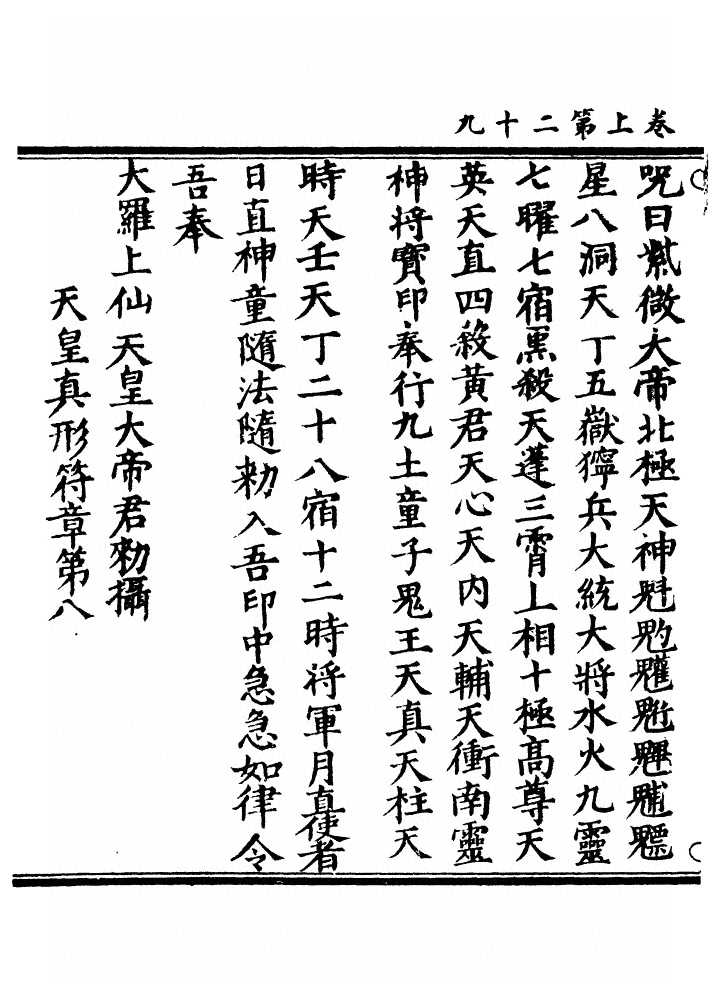 卷上第二十九
咒曰紫微大帝北極天神魁䰢魓䰡魒
星八洞天丁五嶽獰兵大統大將水火九靈
七曜七宿黑殺天蓬三霄上相十極高尊天
英天直四殺黃君天心天內天輔天衝南靈
神將寶印奉行九土童子鬼王天真天柱天
時天壬天丁二十八宿十二時將軍月直使者
日直神童隨法隨勑入吾印中急急如律令
吾奉
大羅上仙天皇大帝君勑攝
天皇真形符章第八